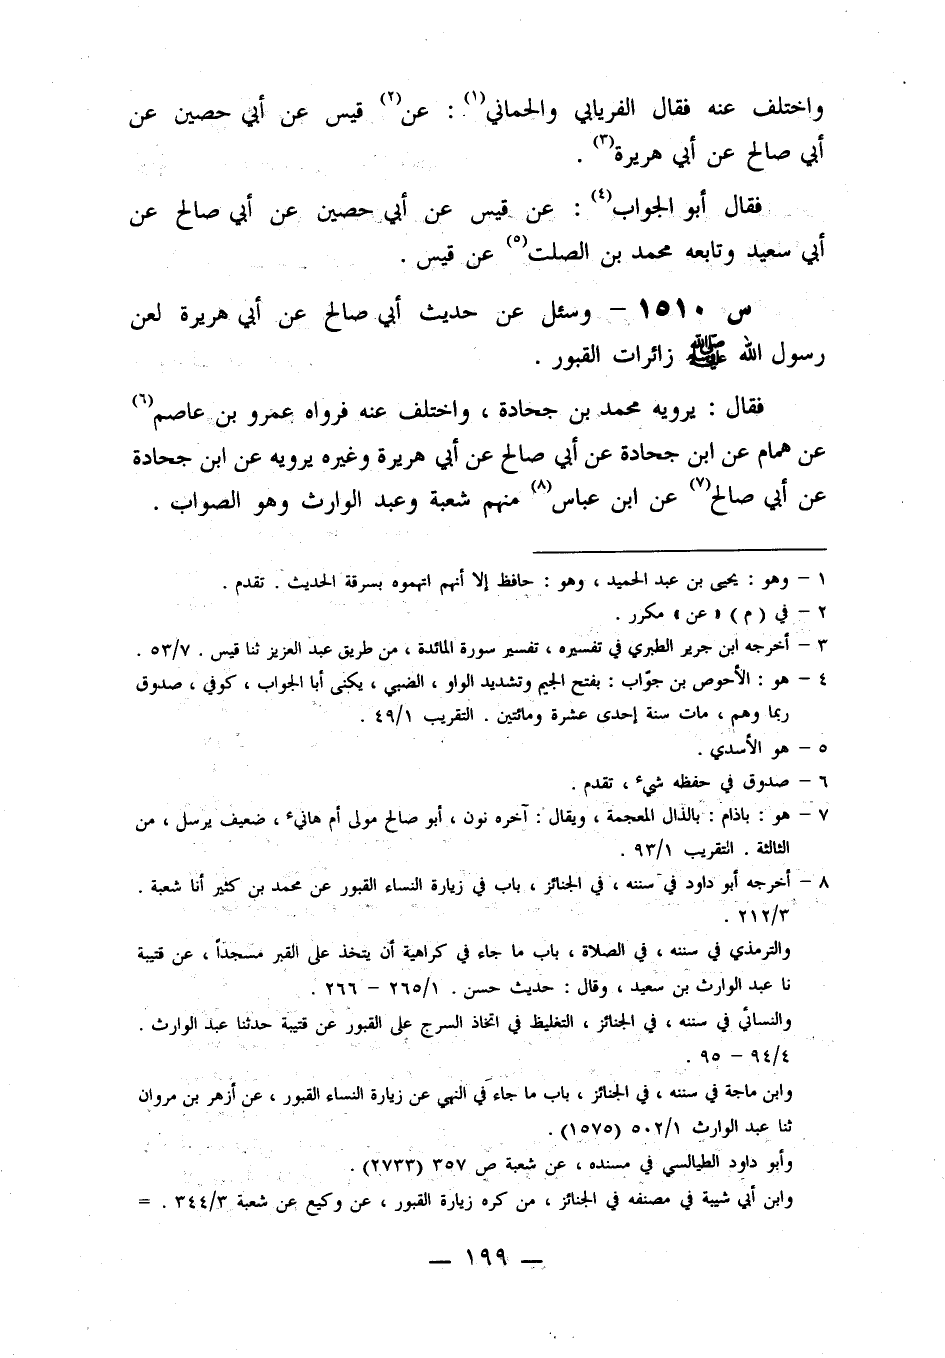 واختلف عنه فقال الفريابي والحماني(١) : عن(٢) قيس عن أبي حصين عن
أبي صالح عن أبي هريرة(٣) .
فقال أبو الجواب(٤) : عن قيس عن أبي حصين عن أبي صالح عن
أبي سعيد وتابعه محمد بن الصلت(٥) عن قيس .
س ١٥١٠ – وسئل عن حديث أبي صالح عن أبي هريرة لعن
رسول الله ﷺ زائرات القبور .
فقال : يرويه محمد بن جحادة ، واختلف عنه فرواه عمرو بن عاصم(٦)
عن همام عن ابن جحادة عن أبي صالح عن أبي هريرة وغيره يرويه عن ابن جحادة
عن أبي صالح(٧) عن ابن عباس(٨) منهم شعبة وعبد الوارث وهو الصواب .
١ – وهو : يحيى بن عبد الحميد ، وهو : حافظ إلا أنهم اتهموه بسرقة الحديث . تقدم .
٢ – في (م) « عن » مكرر .
٣ – أخرجه ابن جرير الطبري في تفسيره ، تفسير سورة المائدة ، من طريق عبد العزيز ثنا قيس . ٥٣/٧ .
٤ – هو : الأحوص بن جوّاب : بفتح الجيم وتشديد الواو ، الضبي ، يكنى أبا الجواب ، كوفي ، صدوق
ربما وهم ، مات سنة إحدى عشرة ومائتين . التقريب ٤٩/١ .
٥ – هو الأسدي .
٦ – صدوق في حفظه شيء ، تقدم .
٧ – هو : باذام : بالذال المعجمة ، ويقال : آخره نون ، أبو صالح مولى أم هانيء ، ضعيف يرسل ، من
الثالثة . التقريب ٩٣/١ .
٨ – أخرجه أبو داود في سننه ، في الجنائز ، باب في زيارة النساء القبور عن محمد بن كثير أنا شعبة .
٢١٢/٣ .
والترمذي في سننه ، في الصلاة ، باب ما جاء في كراهية أن يتخذ على القبر مسجداً ، عن قتيبة
نا عبد الوارث بن سعيد ، وقال : حديث حسن . ٢٦٥/١ – ٢٦٦ .
والنسائي في سننه ، في الجنائز ، التغليظ في اتخاذ السرج على القبور عن قتيبة حدثنا عبد الوارث .
٩٤/٤ – ٩٥ .
وابن ماجة في سننه ، في الجنائز ، باب ما جاء في النهي عن زيارة النساء القبور ، عن أزهر بن مروان
ثنا عبد الوارث ٥٠٢/١ (١٥٧٥) .
وأبو داود الطيالسي في مسنده ، عن شعبة ص ٣٥٧ (٢٧٣٣) .
وابن أبي شيبة في مصنفه في الجنائز ، من كره زيارة القبور ، عن وكيع عن شعبة ٣٤٤/٣ . =
— ١٩٩ —